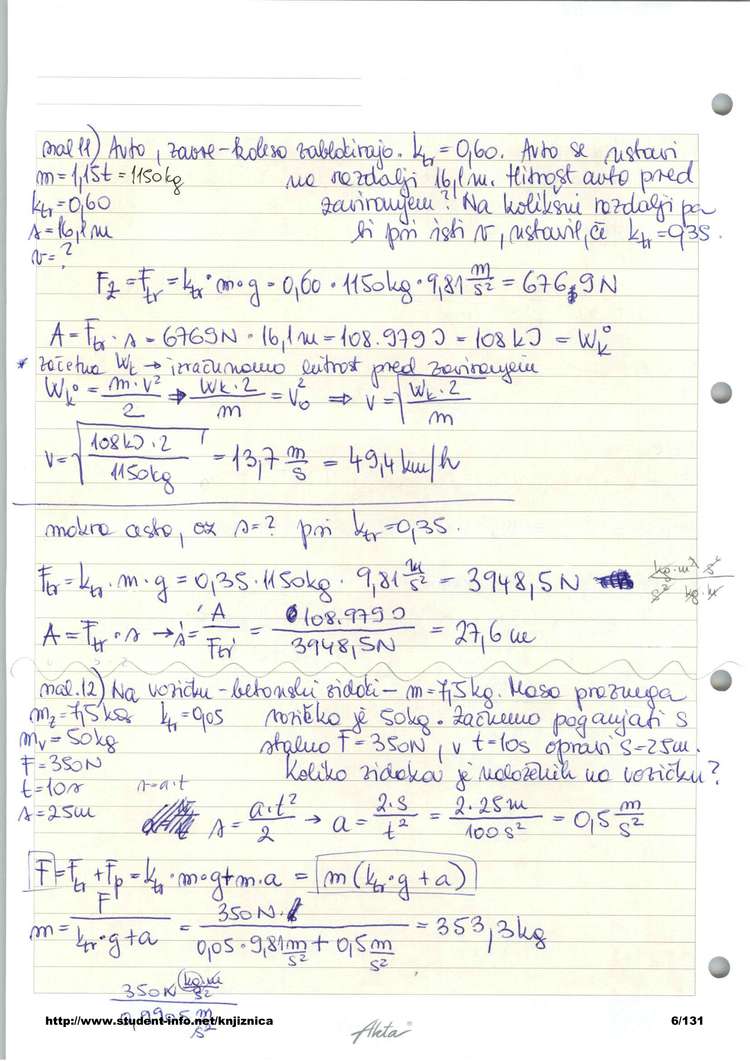 nal 11) Avto, zavre - kolesa zablokirajo. ktr = 0,60. Avto se ustavi
m = 1,15t = 1150kg na razdalji 16,1m. Hitrost avta pred
ktr = 0,60 zaviranjem? Na kolikšni razdalji pa
s = 16,1m bi pri isti v, ustavil, če ktr = 0,35.
v = ?
Fz = Ftr = ktr · m · g = 0,60 · 1150kg · 9,81 m/s² = 6769N
A = Ftr · s = 6769N · 16,1m = 108.979J = 108kJ = Wk°
* začetna Wk → izračunamo hitrost pred zaviranjem
Wk° = m·v²/2 ⇒ Wk·2/m = v₀² ⇒ v = √(Wk·2/m)
v = √(108kJ·2/1150kg) = 13,7 m/s = 49,4 km/h
mokra cesta, oz s = ? pri ktr = 0,35.
Ftr = ktr · m · g = 0,35 · 1150kg · 9,81 m/s² = 3948,5N
A = Ftr · s → s = A/Ftr = 108.979J/3948,5N = 27,6m
nal. 12) Na vozičku - betonski zidaki - m = 7,5kg. Masa praznega
mz = 7,5kg ktr = 0,05 vozička je 50kg. Začnemo poganjati s
mv = 50kg stalno F = 350N, v t = 10s opravi s = 25m.
F = 350N Koliko zidakov je naloženih na vozičku?
t = 10s s = a·t
s = 25m s = a·t²/2 → a = 2·s/t² = 2·25m/100s² = 0,5 m/s²
F = Ftr + Fp = ktr · m·g + m·a = m(ktr·g + a)
m = F/(ktr·g + a) = 350N/(0,05 · 9,81 m/s² + 0,5 m/s²) = 353,3kg
350N kg·m/s²
http://www.student-info.net/knjiznica Akta® 6/131